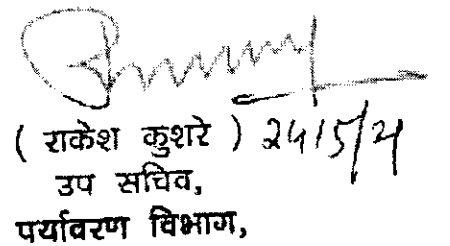 ( राकेश कुशरे ) 24/5/21
उप सचिव,
पर्यावरण विभाग,